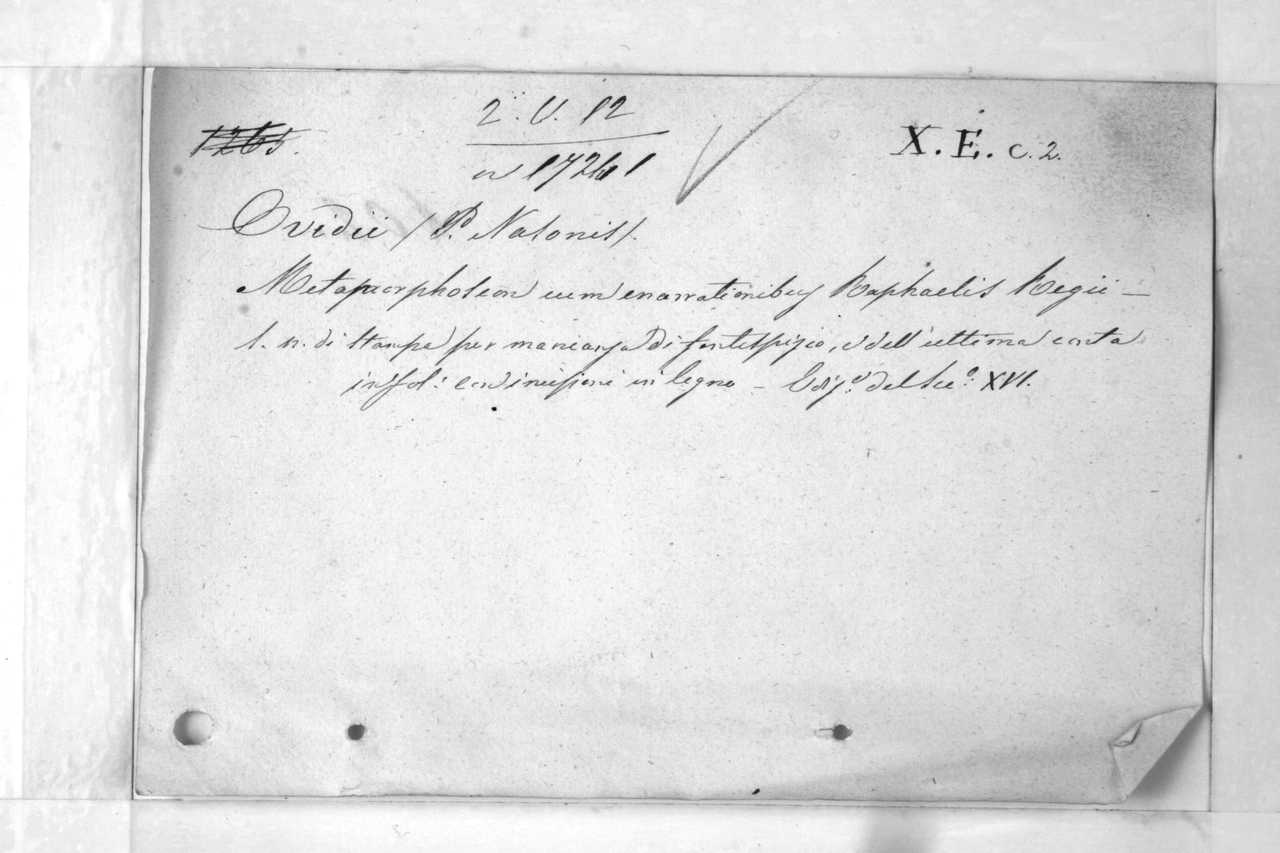 1265.
2. V. 12
X. E. C. 2.
17261
Ovidii (P. Nasonis).
Metamorphoseon cum enarrationibus Raphaelis Regii —
s. n. di stampa per mancanza di frontespizio, e dell'ultima carta
in fol: con incisioni in legno — Ediz.e del Sec.o XVI.